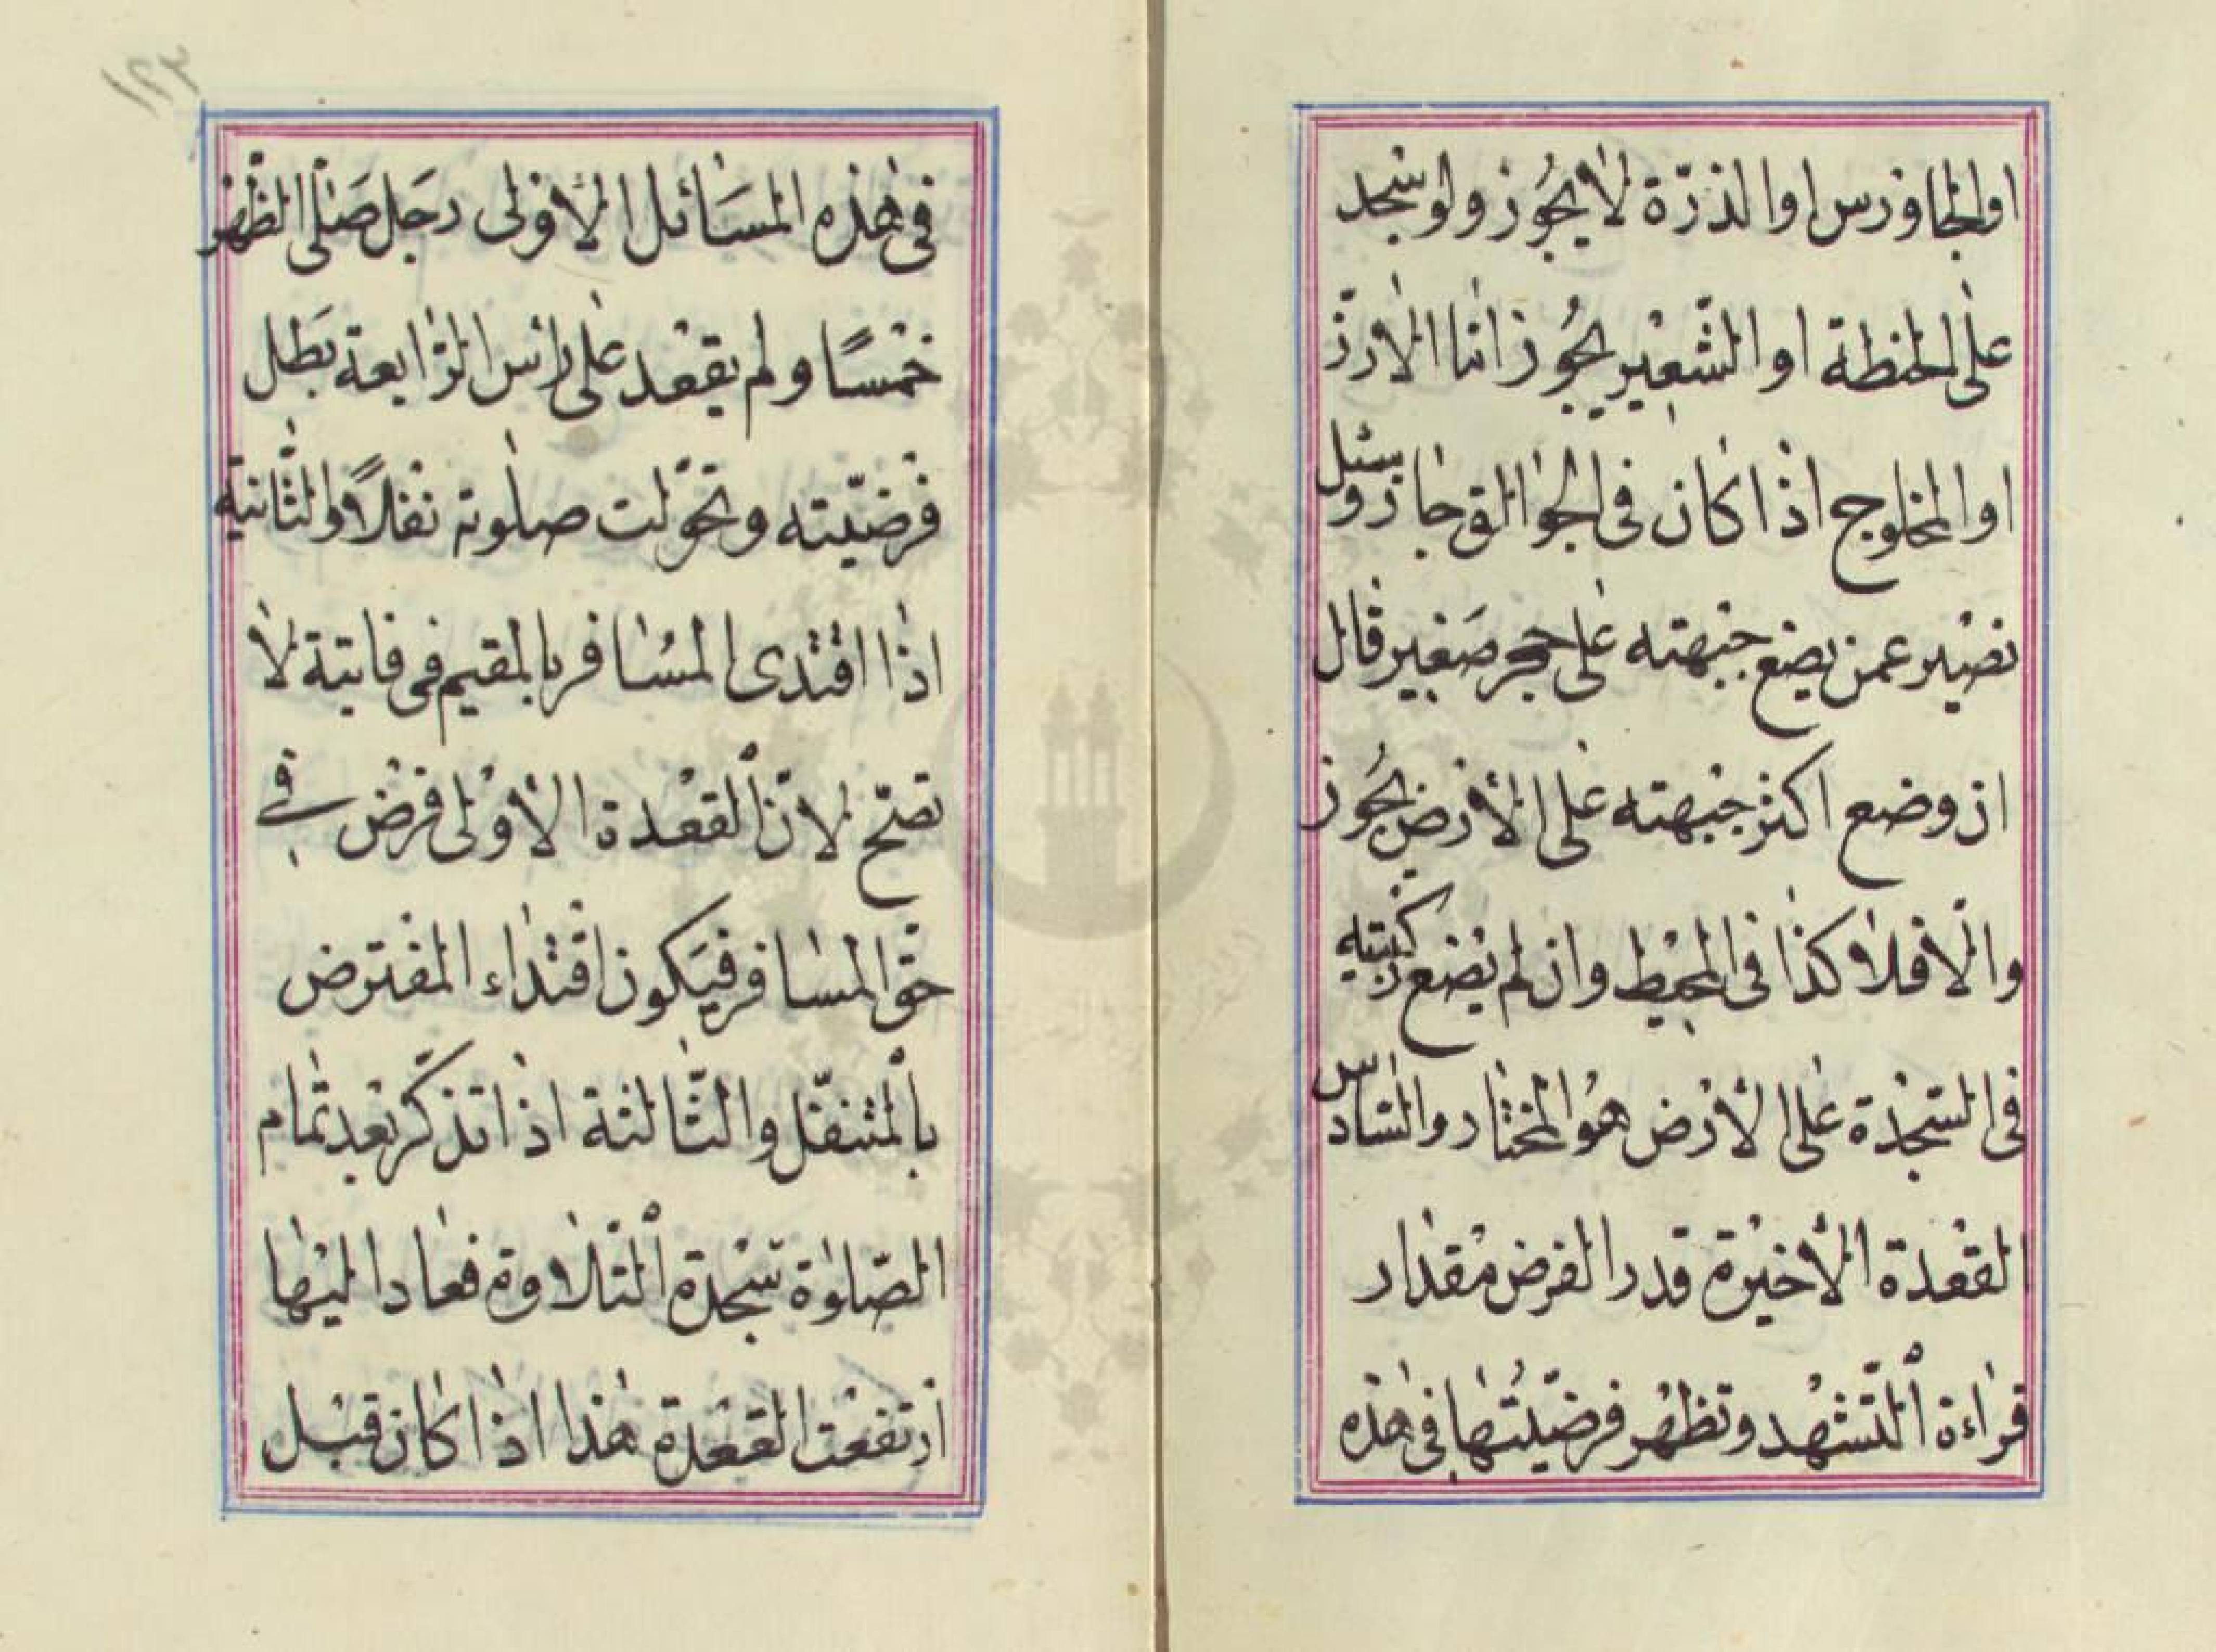 او الجاورس او الذرّة لا يجُوز ولو سجد
على الحنطة او الشّعير يجُوز امّا الارزّ
او المخلوج اذا كان فى الجوالق جاز وسئل
نصير عمن يضع جبهته على حجر صغير قال
ان وضع اكثر جبهته على الأرض يجُوز
والّا فلا كذا فى المحيط وان لم يضع ركبتيه
فى السّجدة على الأرض هُو المختار والسّادس
القعْدة الأخيرة قدر الفرض مقدار
قراءة التّشهد وتظهر فرضيّتُها فى هذه
١٢٢
فى هذه المسَائل الأولى رجَل صَلّى الظّهْر
خمْسًا ولم يقعْد على رأس الرّابعة بَطل
فرضيّته وتحوّلت صلوته نفْلاً والثّانية
اذا اقتدى المسَافر بالمقيم فى فايتة لا
تصحّ لانّ القعْدة الأوْلى فرض فى
حق المسافر فيَكون اقتداء المفترض
بالمتنفّل والثّالثة اذا تذكّر بعد تمام
الصّلوٰة سجْدة التّلاوة فعاد اليْها
ارتفعْت القعْدة هٰذا اذا كان قبْل